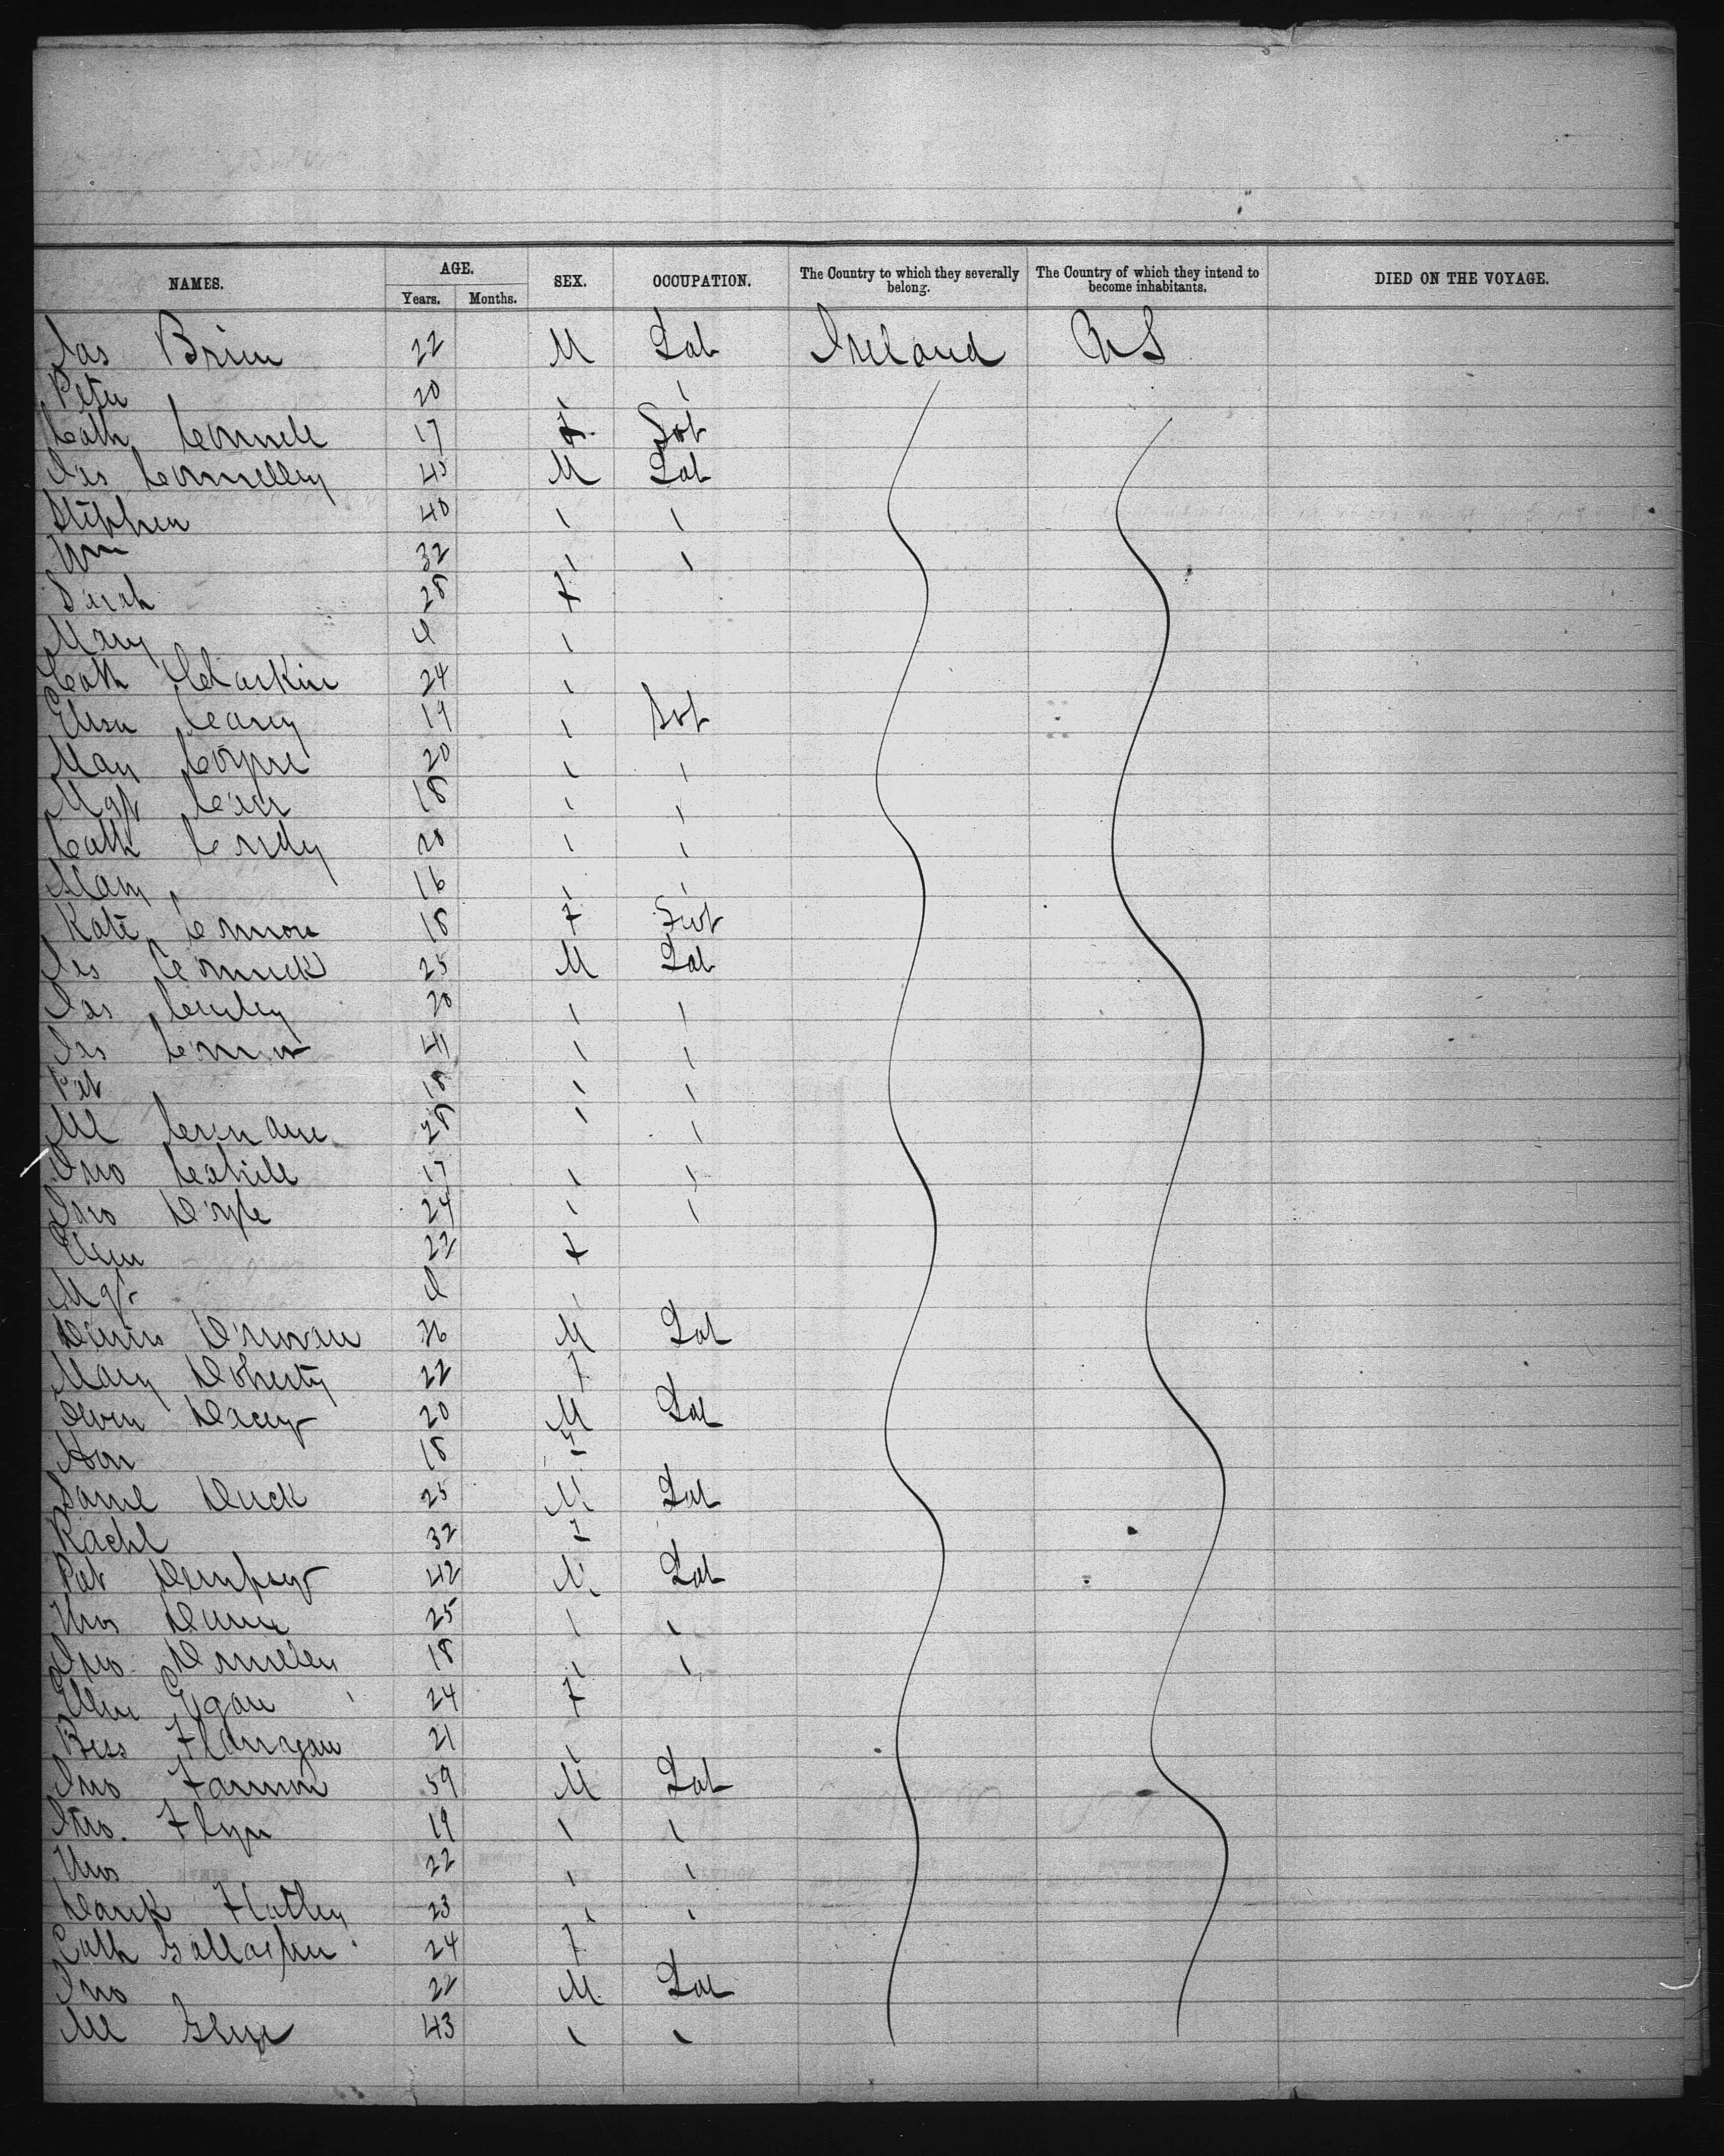 NAMES. AGE. SEX. OCCUPATION. The Country to which they severally belong. The Country of which they intend to become inhabitants. DIED ON THE VOYAGE.
Years. Months.
Jas Brien 22 M Lab Ireland US
Peter 20
Cath Connell 17 F Svt
Jas Connelley 45 M Lab
Stephen 40
Wm 32
Sarah 28 F
Mary
Cath 24
Eliza Carey 19 Svt
Mary Coyne 20
Mgt 18
Cath 20
Mary 16
Kate Connor 18 F Svt
Jas Cormick 25 M Lab
Jas 20
Jas Connor 41
Pat 18
Ml 28
Jno Cahill 17
Jno Doyle 24
Ellen 22 F
Mgt
Dennis Donovan 36 M Lab
Mary Doherty 22 F
Owen Dacey 20 M Lab
Hon 18 F
Saml Duck 25 M Lab
Rachl 32 F
Pat Dempsey 42 M Lab
Thos 25
Jno Donnelley 18
Ellen Egan 24 F
Bess Flanagan 21
Jno Fannon 59 M Lab
Jno. Flyn 19
Thos 22
Flatley 23
Cath Gallagher 24 F
Jno 22 M Lab
Ml Glynn 43